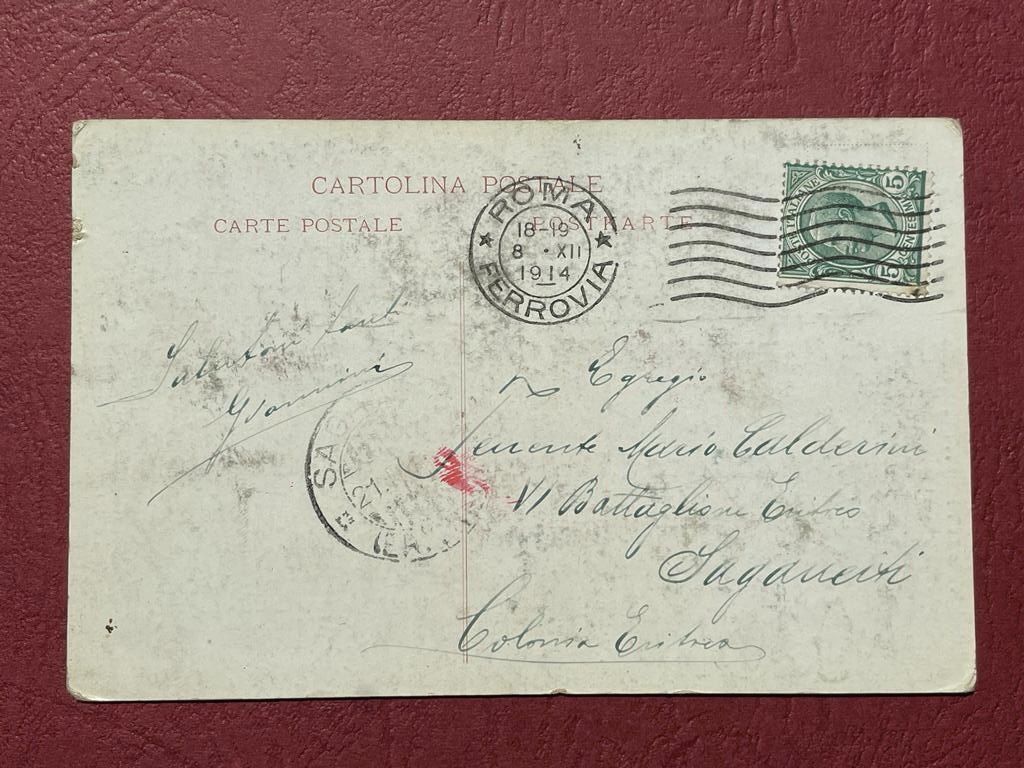 CARTOLINA POSTALE
CARTE POSTALE
POSTKARTE
ROMA
18-19
8 · XII
1914
FERROVIA
POSTE ITALIANE
5
CENTESIMI
5
Salutoni tanti
Giannini
SAG
21
Egregio
Tenente Mario Calderini
VI Battaglione Eritreo
Saganeiti
Colonia Eritrea